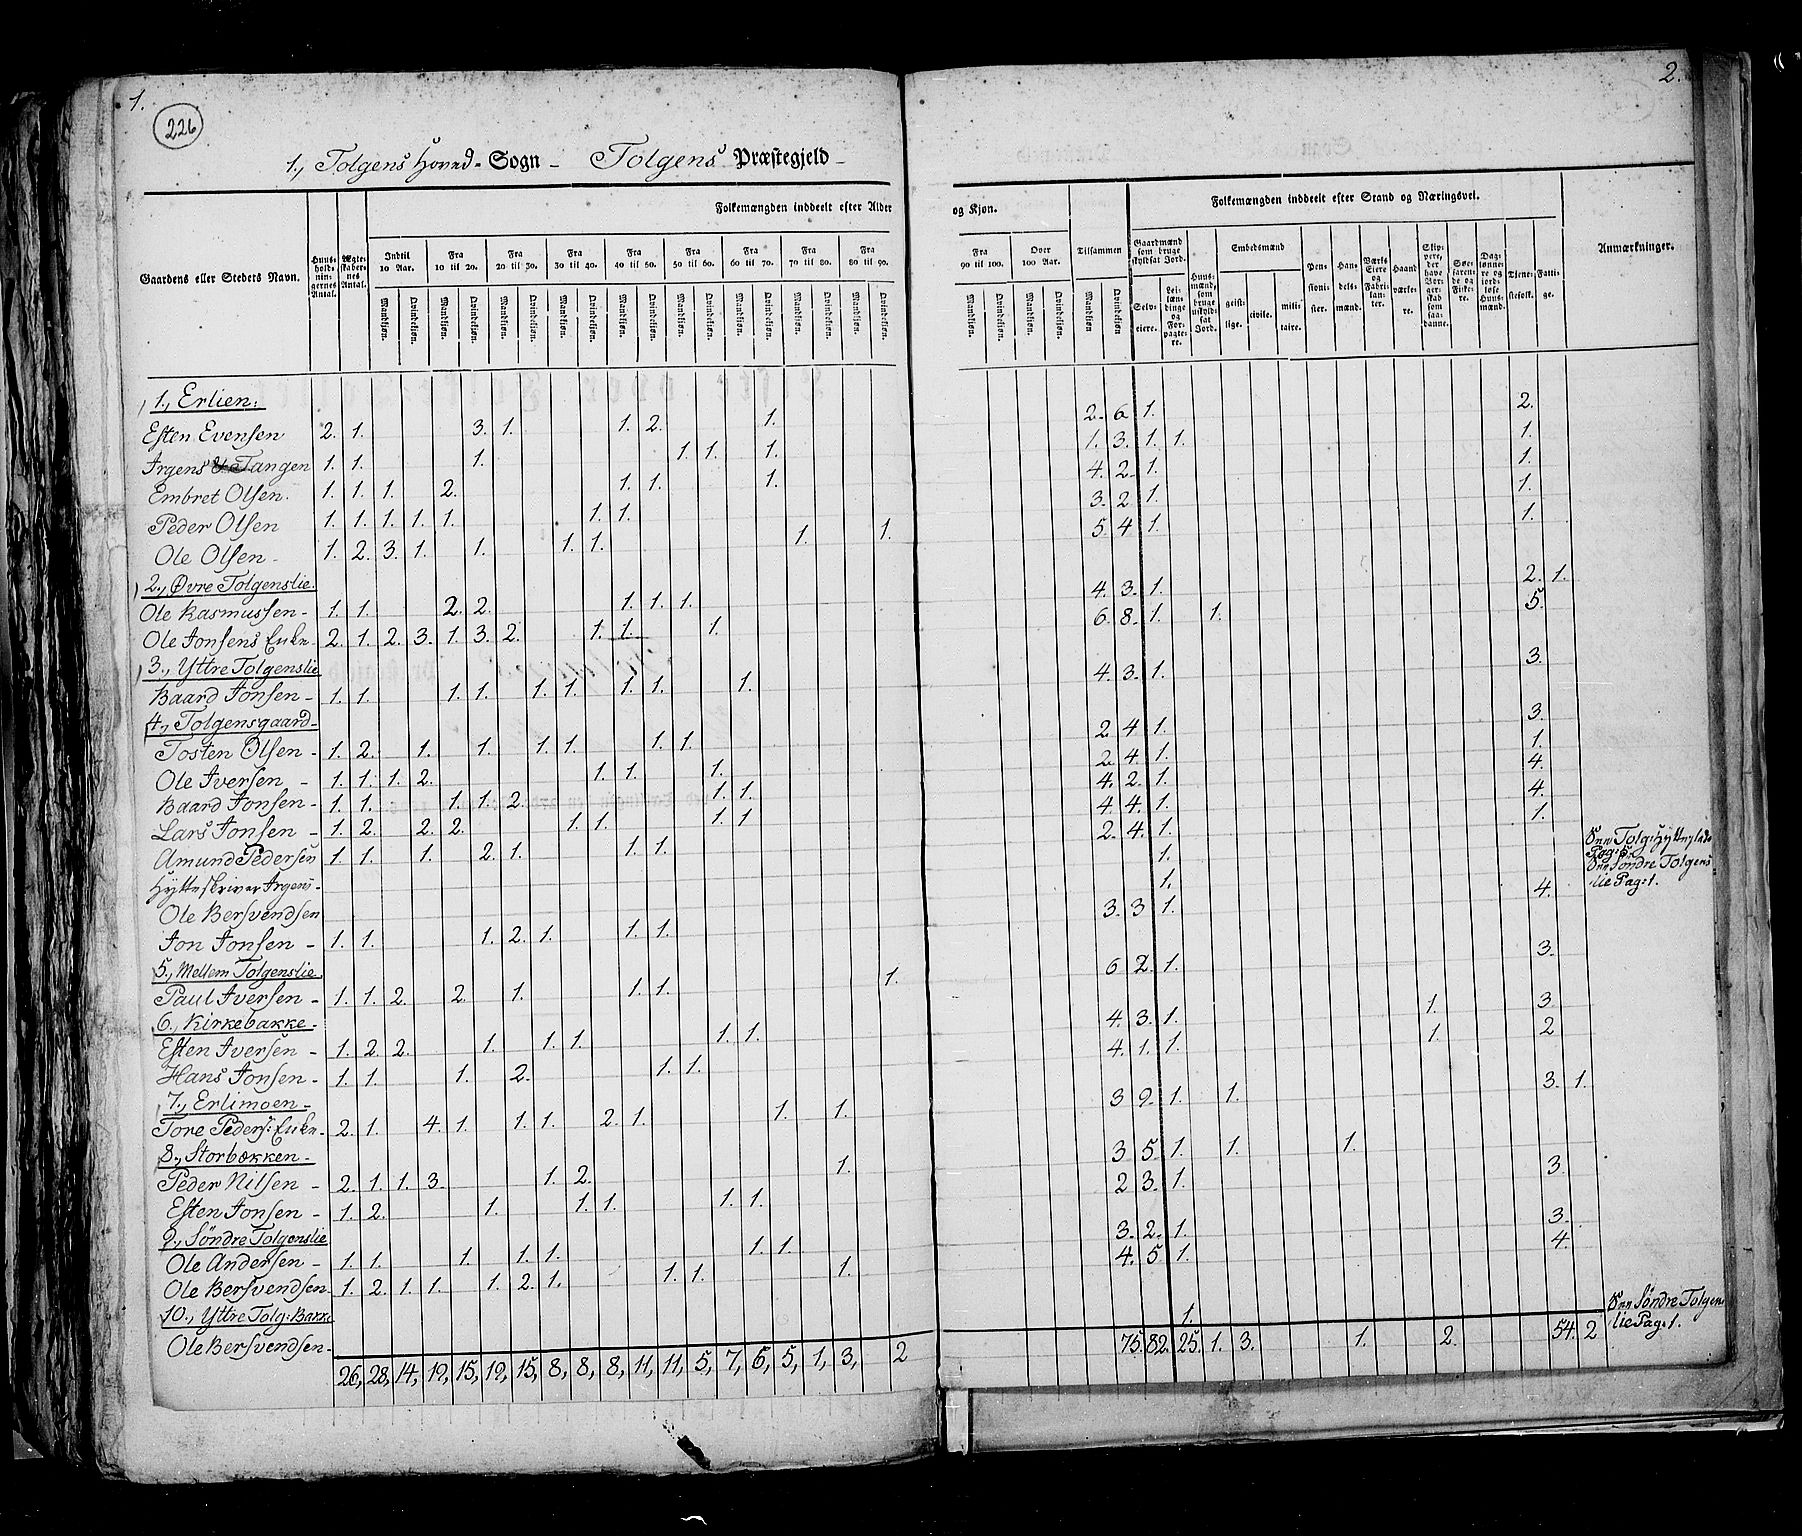 1.
226
2.
1., Tolgens Hoved- Sogn - Tolgens Præstegjeld -
Gaardens eller Steders Navn.
Huus-holdnin-gernes Antal.
Ægte-skaber-nes Antal.
Folkemængden inddeelt efter Alder og Kjøn.
Indtil 10 Aar. Fra 10 til 20. Fra 20 til 30. Fra 30 til 40. Fra 40 til 50. Fra 50 til 60. Fra 60 til 70. Fra 70 til 80. Fra 80 til 90. Fra 90 til 100. Over 100 Aar. Tilsammen
Mandkjøn. Qvindekjøn.
Folkemængden inddeelt efter Stand og Næringsvei.
Gaardmænd som bruge skyldsat Jord.
Selv-eiere. Lei-læn-dinge og For-pagte-re.
Huus-mænd, som bruge uskyld-sat Jord.
Embedsmænd
geist-lige. civile. mili-taire.
Pen-sioni-ster. Han-dels-mænd. Værks Eiere og Fabri-kan-ter. Haand-værke-re.
Dag-lønne-re og jord-løse Huus-mænd. Tjene-stefolk. Fatti-ge.
Anmærkninger.
1., Erlien:
Esten Evensen 2. 1. 3. 1. 1. 2. 1. 2. 6. 1. 2.
Irgens Tangen 1. 1. 1. 1. 1. 1. 1. 3. 1. 1. 1.
Embret Olsen. 1. 1. 1. 2. 1. 1. 1. 4. 2. 1. 1.
Peder Olsen 1. 1. 1. 1. 1. 1. 1. 3. 2. 1. 1.
Ole Olsen - 1. 2. 3. 1. 1. 1. 1. 1. 1. 5 4. 1. 1.
2., Øvre Tolgenslie.
Ole Rasmussen - 1. 1. 2. 2. 1. 1. 1. 4. 3. 1. 2. 1.
Ole Jonsens Enke- 2. 1. 2. 3. 1. 3. 2. 1. 1. 1. 6. 8. 1. 1. 5.
3., Yttre Tolgenslie
Baard Jonsen - 1. 1. 1. 1. 1. 1. 1. 1. 1. 4. 3. 1. 3.
4., Tolgensgaard-
Tosten Olsen - 1. 2. 1. 1. 1. 1. 1. 1. 2 4. 1. 3.
Ole Iversen - 1. 1. 1. 2. 1. 1. 1. 2. 4. 1. 1.
Baard Jonsen - 1. 1. 1. 1. 2. 1. 1. 4. 2. 1. 4.
Lars Jonsen - 1. 2. 2. 2. 1. 1. 1. 1. 4. 4. 1. 4.
Amund Pedersen 1. 1. 1. 2. 1. 1. 1. 2. 4. 1. 1.
Hytteskriver Irgens- 1.
Ole Bersvendsen 1. Søndre Tolgens lie Pag: 1.
Jon Jonsen - 1. 1. 1. 2. 1. 1. 1. 3. 3 1. 4.
5., Mellem Tolgenslie.
Paul Iversen - 1. 1. 2. 2. 1. 1. 1. 1. 6 2. 1. 3.
6., Kirkebakke -
Esten Iversen - 1. 2. 2. 1. 1. 1. 1. 1. 4. 3. 1. 1. 3.
Hans Jonsen - 1. 1. 1. 2. 1. 1. 4. 1. 1. 1. 2
7., Erlimoen -
Tore Peders: Enke- 2. 1. 4. 1. 1. 1. 2. 1. 1. 1. 3 9. 1. 1. 3. 1.
8., Storbækken -
Peder Nilsen - 2. 1. 1. 3. 1. 2. 1. 3 5. 1. 1. 1.
Esten Jonsen - 1. 2. 1. 1. 1. 1. 1. 2 3. 1. 3.
9., Søndre Tolgenslie
Ole Andersen - 1. 1. 1. 1. 1. 1. 1. 3. 2. 1. 3.
Ole Bersvendsen- 1. 2. 1. 1. 1. 2. 1. 1. 1. 1. 4. 5 1. 4.
10., Yttre Tolg: Bakke
Ole Bersvendsen- 1. Søndre Tolgens lie Pag: 1.
26, 28, 14, 19, 15, 19, 15, 8, 8, 8, 11, 11, 5, 7, 6, 5, 1, 3, 2 75. 82. 25. 1. 3. 1. 2. 54. 2